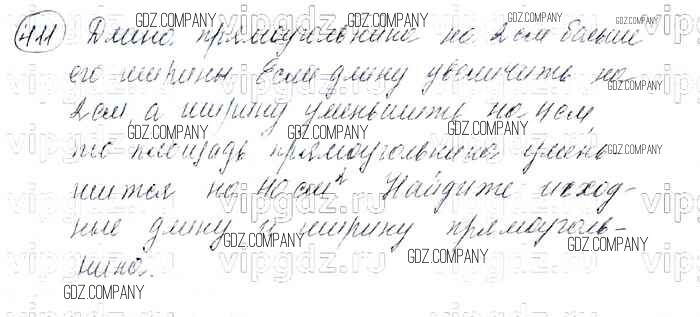 411 Длина прямоугольника на 2 см больше
его ширины. Если длину увеличить на
2 см, а ширину уменьшить на 4 см,
то площадь прямоугольника умень-
шится на 40 см². Найдите исход-
ные длину и ширину прямоуголь-
ника.